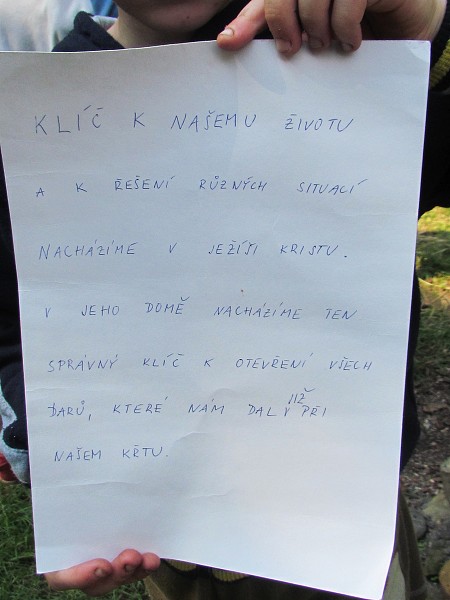 KLÍČ K NAŠEMU ŽIVOTU
A K ŘEŠENÍ RŮZNÝCH SITUACÍ
NACHÁZÍME V JEŽÍŠI KRISTU.
V JEHO DOMĚ NACHÁZÍME TEN
SPRÁVNÝ KLÍČ K OTEVŘENÍ VŠECH
DARŮ, KTERÉ NÁM DAL JIŽ PŘI
NAŠEM KŘTU.